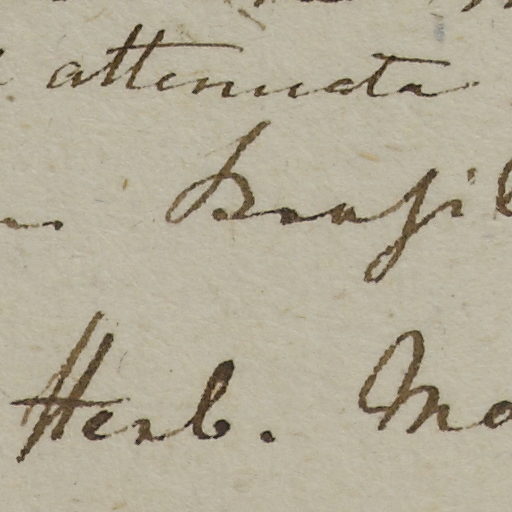 attenuata
Brasil
Herb. Mo